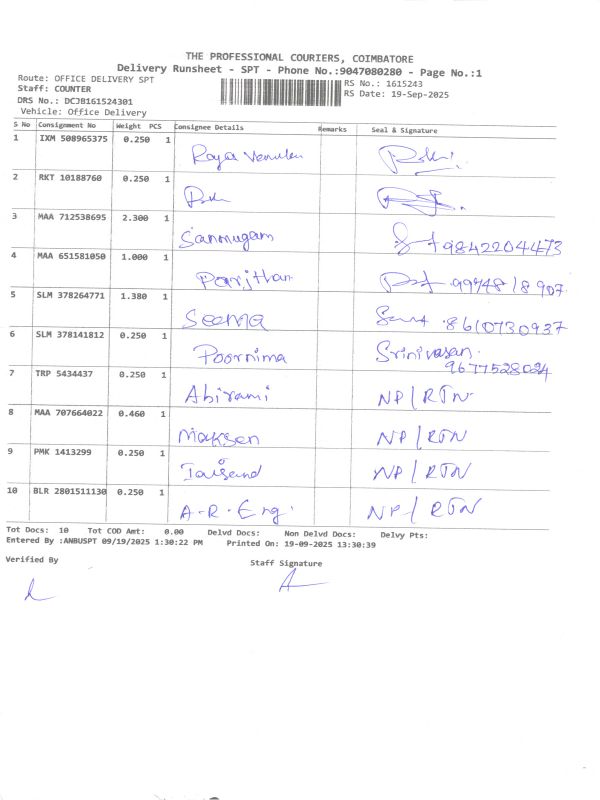 THE PROFESSIONAL COURIERS, COIMBATORE
Delivery Runsheet - SPT - Phone No.:9047080280 - Page No.:1
Route: OFFICE DELIVERY SPT
RS No.: 1615243
Staff: COUNTER
RS Date: 19-Sep-2025
DRS No.: DCJB161524301
Vehicle: Office Delivery
S No Consignment No Weight PCS Consignee Details Remarks Seal & Signature
1 IXM 508965375 0.250 1 Raya
2 RKT 10188760 0.250 1
3 MAA 712538695 2.300 1 Sanmugam 9842204473
4 MAA 651581050 1.000 1 Parjthan 9994818907
5 SLM 378264771 1.380 1 Seema 8610730937
6 SLM 378141812 0.250 1 Poornima Srinivasan. 9677528024
7 TRP 5434437 0.250 1 Abirami NP/RTN
8 MAA 707664022 0.460 1 Maksen NP/RTN
9 PMK 1413299 0.250 1 NP/RTN
10 BLR 2801511130 0.250 1 A-R-Eng. NP/RTN
Tot Docs: 10 Tot COD Amt: 0.00 Delvd Docs: Non Delvd Docs: Delvy Pts:
Entered By :ANBUSPT 09/19/2025 1:30:22 PM Printed On: 19-09-2025 13:30:39
Verified By
Staff Signature